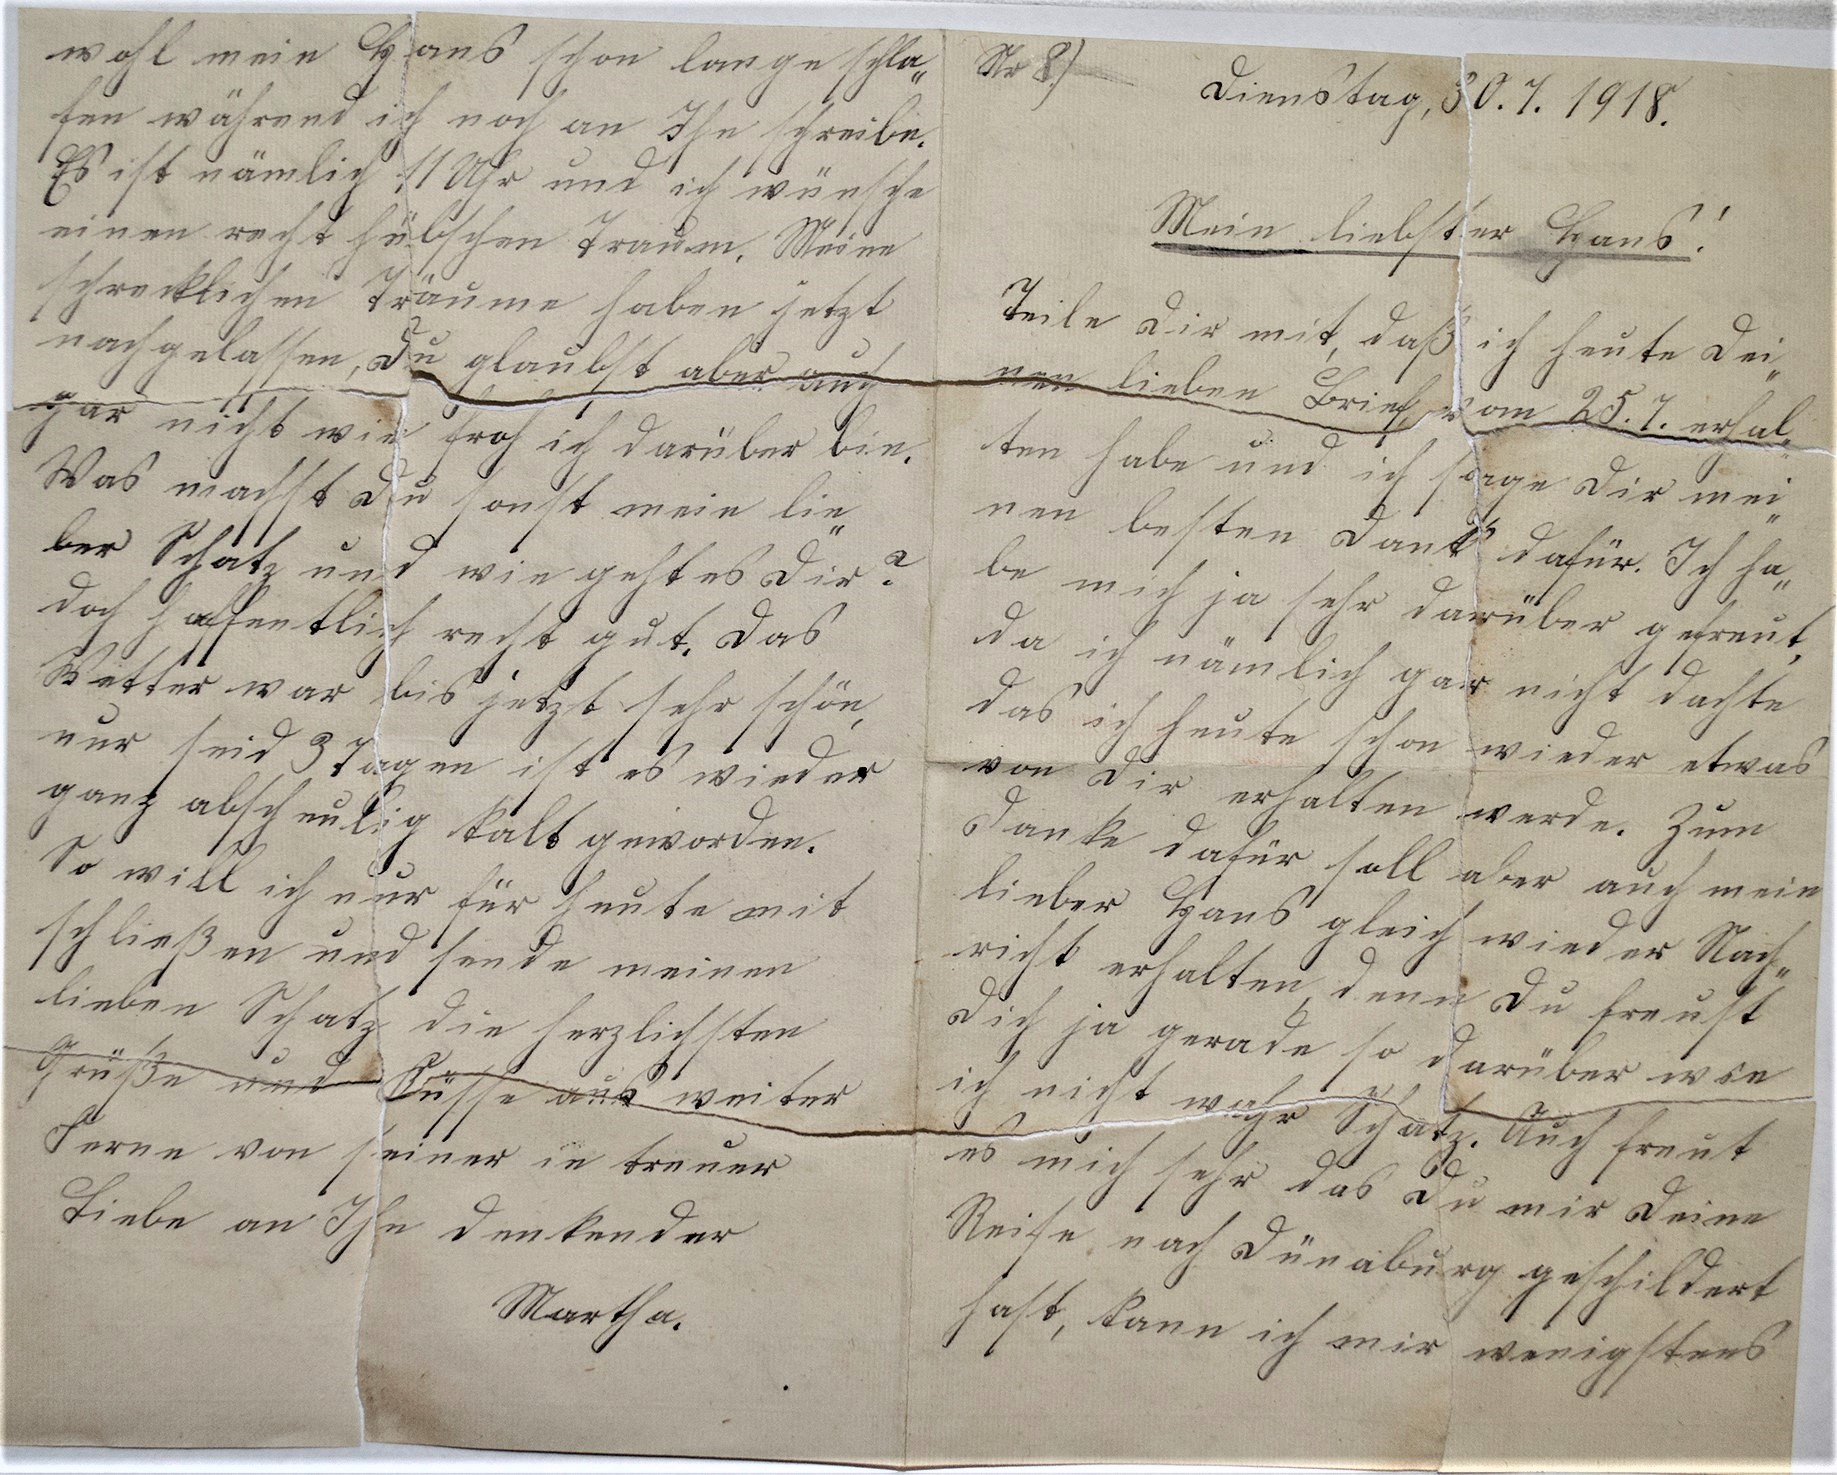 Nr 8.)
Dienstag, 30.7.1918.
Mein liebster Hans!
Teile Dir mit, daß ich heute Dei„
nen lieben Brief, vom 25.7. erhal„
ten habe und ich sage Dir mei„
nen besten Dank dafür. Ich ha„
be mich ja sehr darüber gefreut,
da ich nämlich gar nicht dachte
das ich heute schon wieder etwas
von Dir erhalten werde. Zum
Danke dafür soll aber auch mein
lieber Hans gleich wieder Nach„
richt erhalten, denn Du freust
Dich ja gerade so darüber wie
ich nicht wahr Schatz. Auch freut
es mich sehr das Du mir Deine
Reise nach Dünaburg geschildert
hast, kann ich mir wenigstens
wohl mein Hans schon lange schla„
fen während ich noch an Ihn schreibe.
Es ist nämlich 11 Uhr und ich wünsche
einen recht hübschen Traum. Meine
schrecklichen Träume haben jetzt
nachgelassen, Du glaubst aber auch
gar nicht wie froh ich darüber bin.
Was machst Du sonst mein lie„
ber Schatz und wie geht es Dir?
doch hoffentlich recht gut. Das
Wetter war bis jetzt sehr schön,
nur seid 3 Tagen ist es wieder
ganz abscheulig kalt geworden.
So will ich nur für heute mit
schließen und sende meinen
lieben Schatz die herzlichsten
Grüße und Küsse aus weiter
Ferne von seiner in treuer
Liebe an Ihn denkender
Martha.